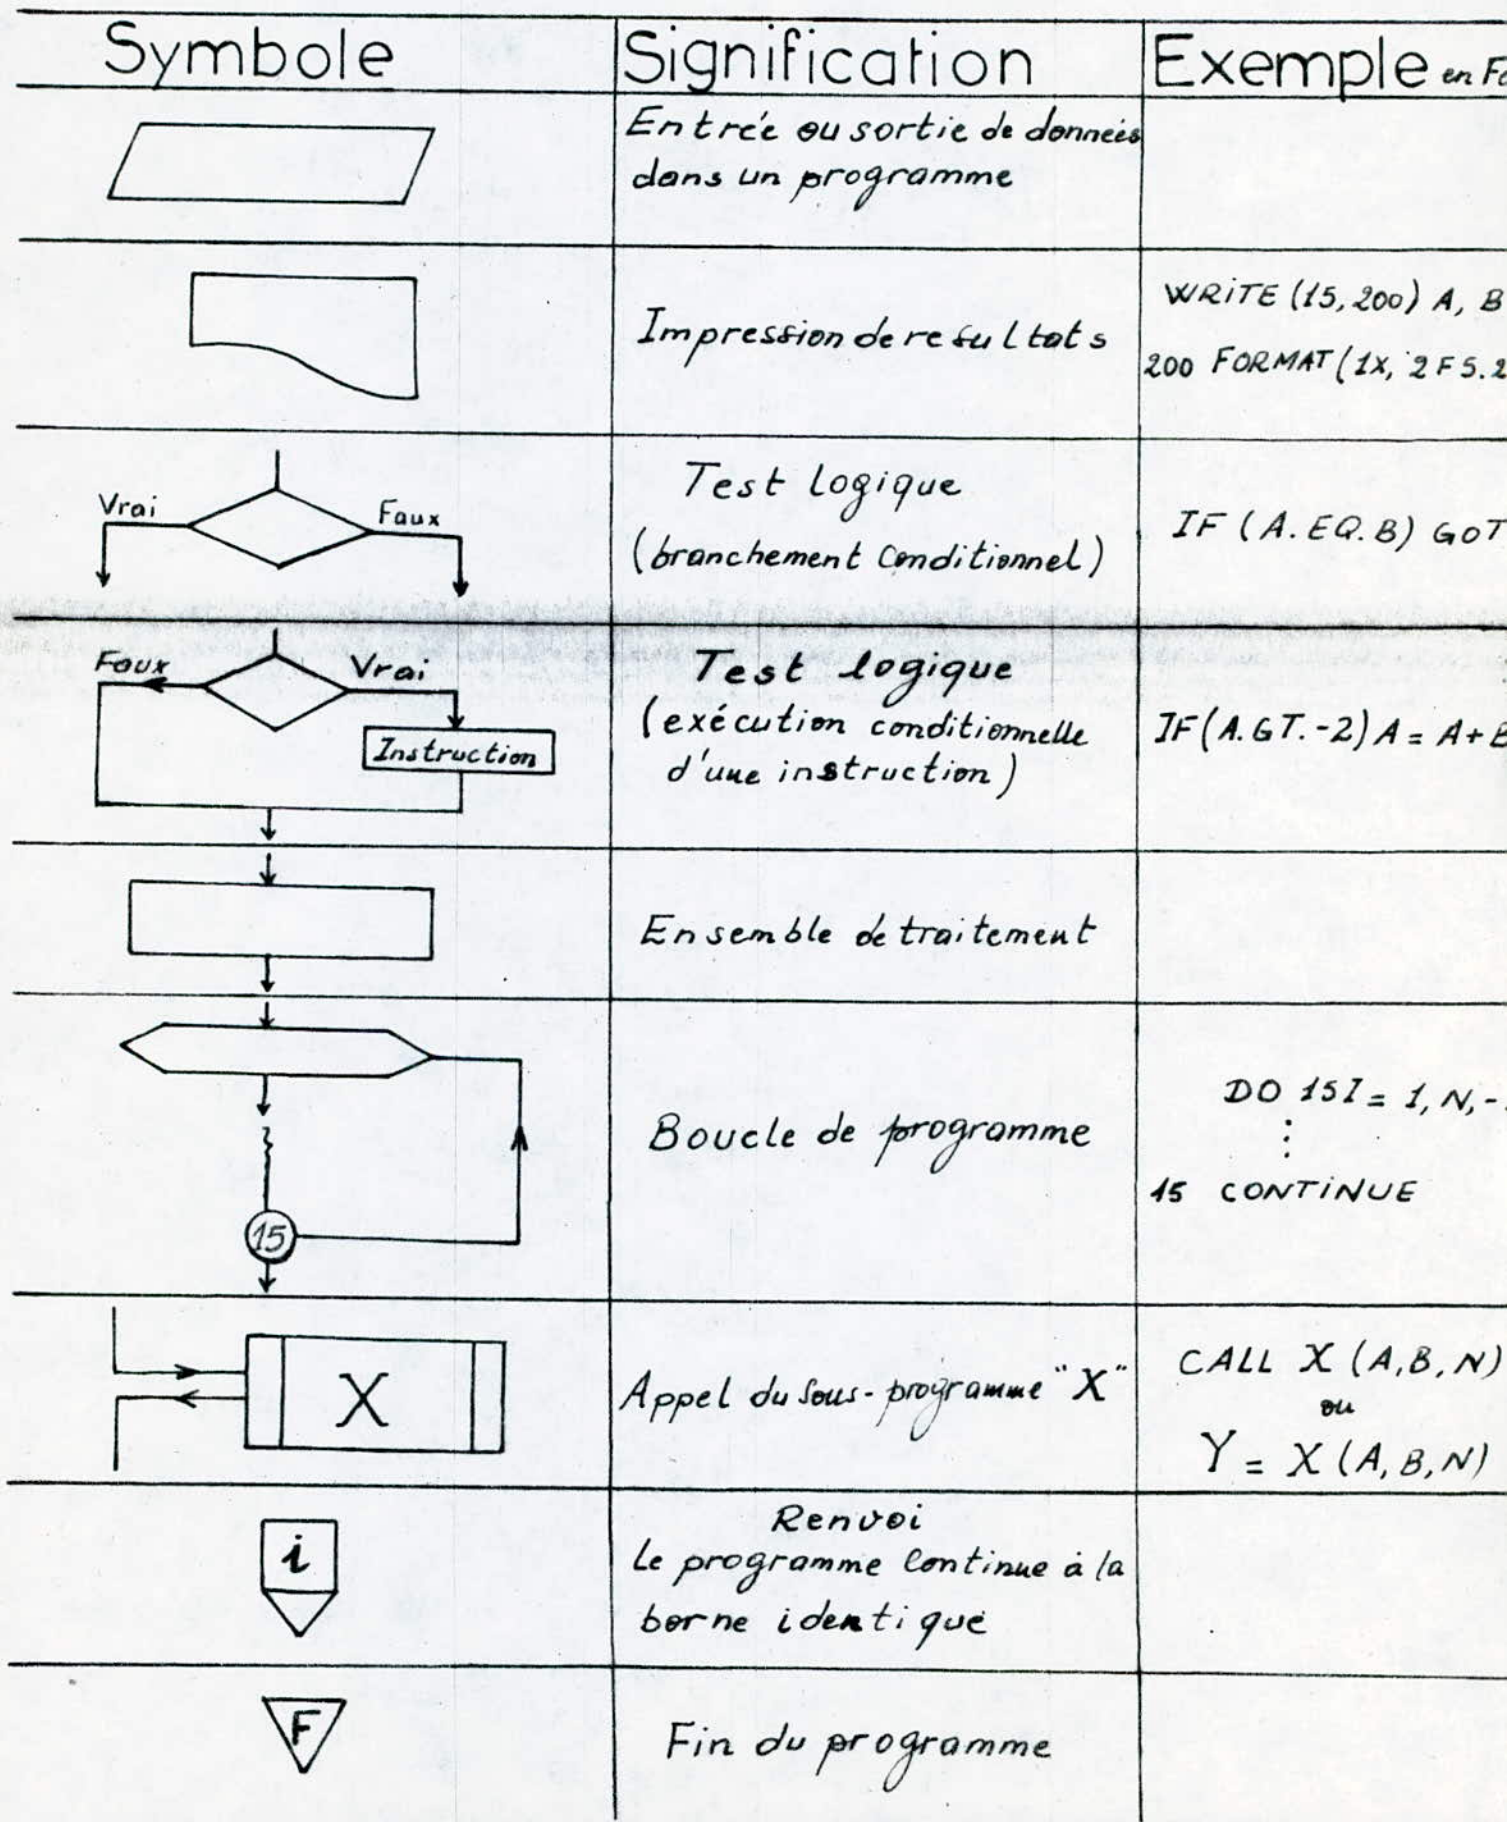 Symbole
Signification
Exemple en Fo
Entrée ou sortie de données
dans un programme
Impression de resultats
WRITE (15, 200) A, B
200 FORMAT (1X, 2F5.2
Vrai
Faux
Test logique
(branchement conditionnel)
IF (A.EQ.B) GOT
Faux
Vrai
Instruction
Test logique
(exécution conditionnelle
d'une instruction)
IF (A.GT.-2) A = A+B
Ensemble de traitement
15
Boucle de programme
DO 15 I = 1, N, -
15 CONTINUE
X
Appel du sous-programme "X"
CALL X (A,B,N)
ou
Y = X (A,B,N)
i
Renvoi
Le programme continue à la
borne identique
F
Fin du programme